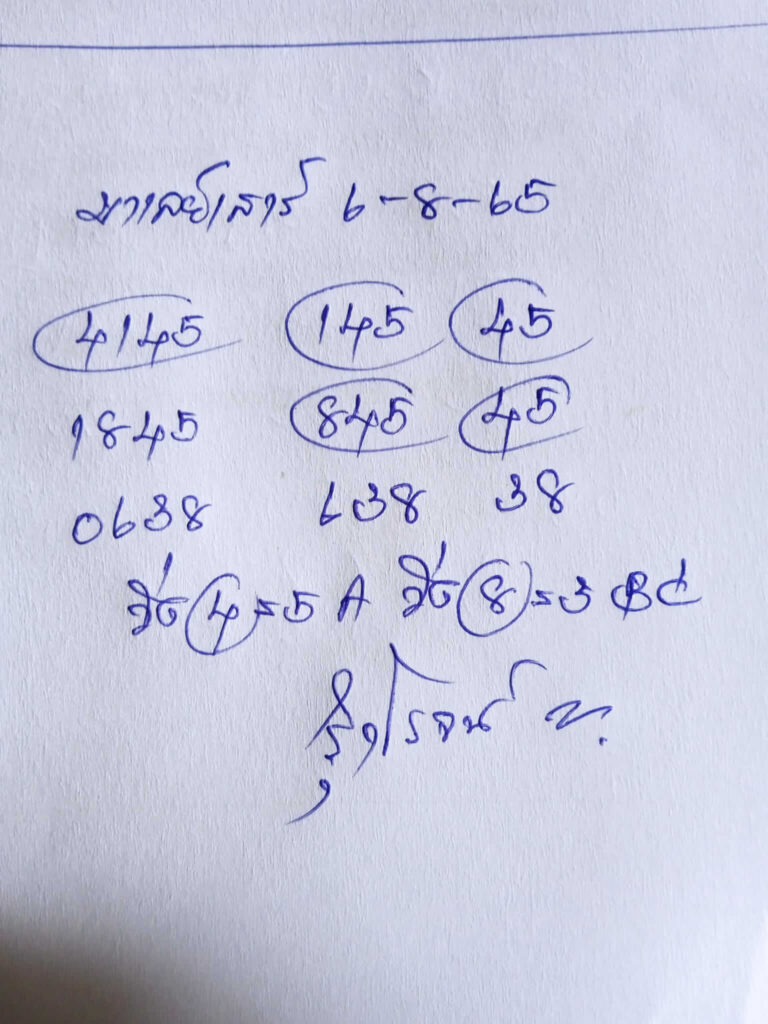 มาเลย์เสาร์ 6-8-65
4145 145 45
1845 845 45
0638 638 38
วิ่ง 4=5 A วิ่ง 8=3 BC
รุ่งโรจน์ ข.